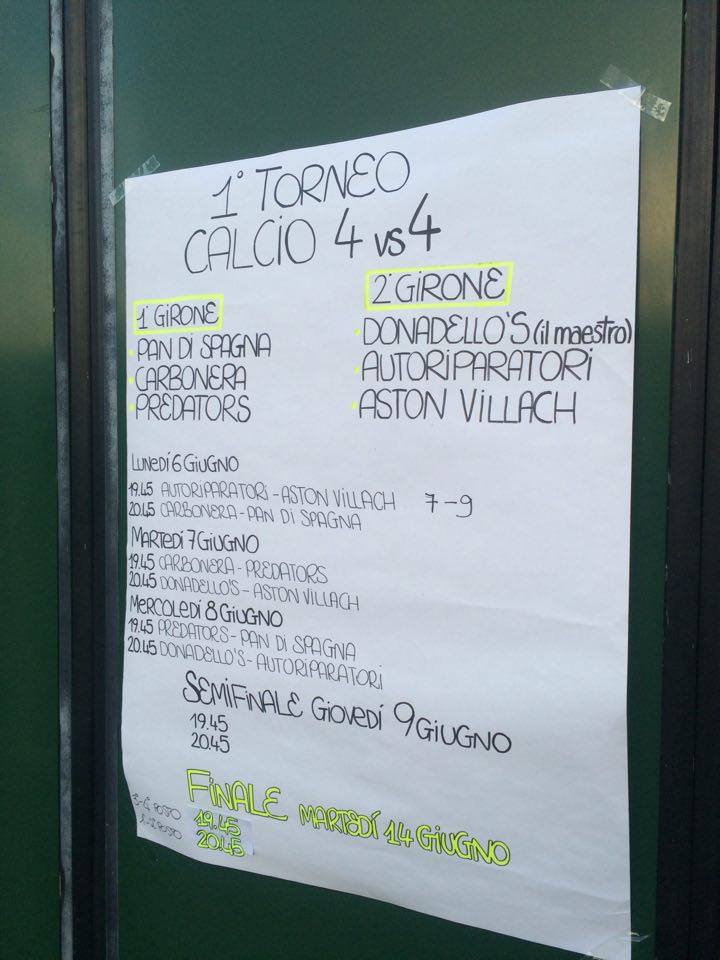 1° TORNEO
CALCIO 4 vs 4
1° GIRONE
• PAN DI SPAGNA
• CARBONERA
• PREDATORS
2° GIRONE
• DONADELLO'S (il maestro)
• AUTORIPARATORI
• ASTON VILLACH
LUNEDÍ 6 GIUGNO
19.45 AUTORIPARATORI - ASTON VILLACH 7-9
20.45 CARBONERA - PAN DI SPAGNA
MARTEDÍ 7 GIUGNO
19.45 CARBONERA - PREDATORS
20.45 DONADELLO'S - ASTON VILLACH
MERCOLEDÍ 8 GIUGNO
19.45 PREDATORS - PAN DI SPAGNA
20.45 DONADELLO'S - AUTORIPARATORI
SEMIFINALE GIOVEDÍ 9 GIUGNO
19.45
20.45
FINALE MARTEDÍ 14 GIUGNO
3-4 POSTO 19.45
1-2 POSTO 20.45